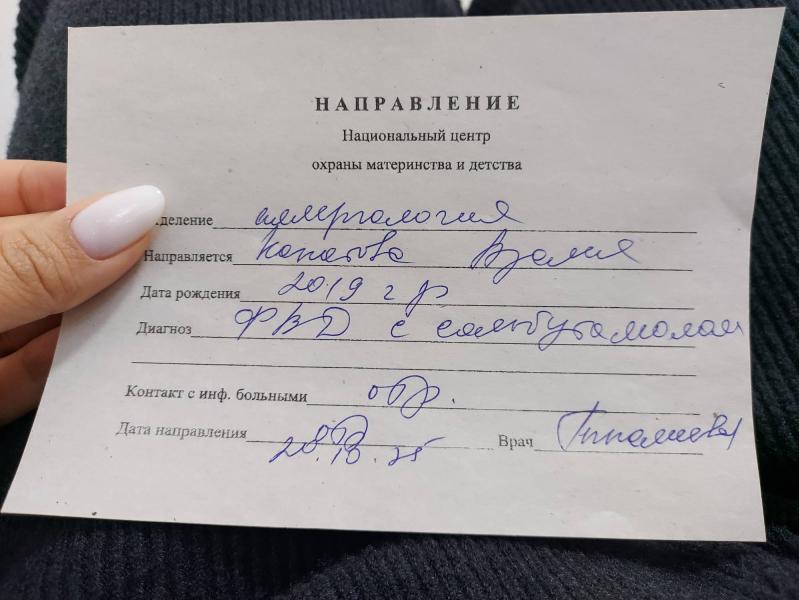 НАПРАВЛЕНИЕ
Национальный центр
охраны материнства и детства
деление аллергология
Направляется
Дата рождения 2019 г р
Диагноз ФВД с сальбутамолом
Контакт с инф. больными отр.
Дата направления 28.10.25 Врач